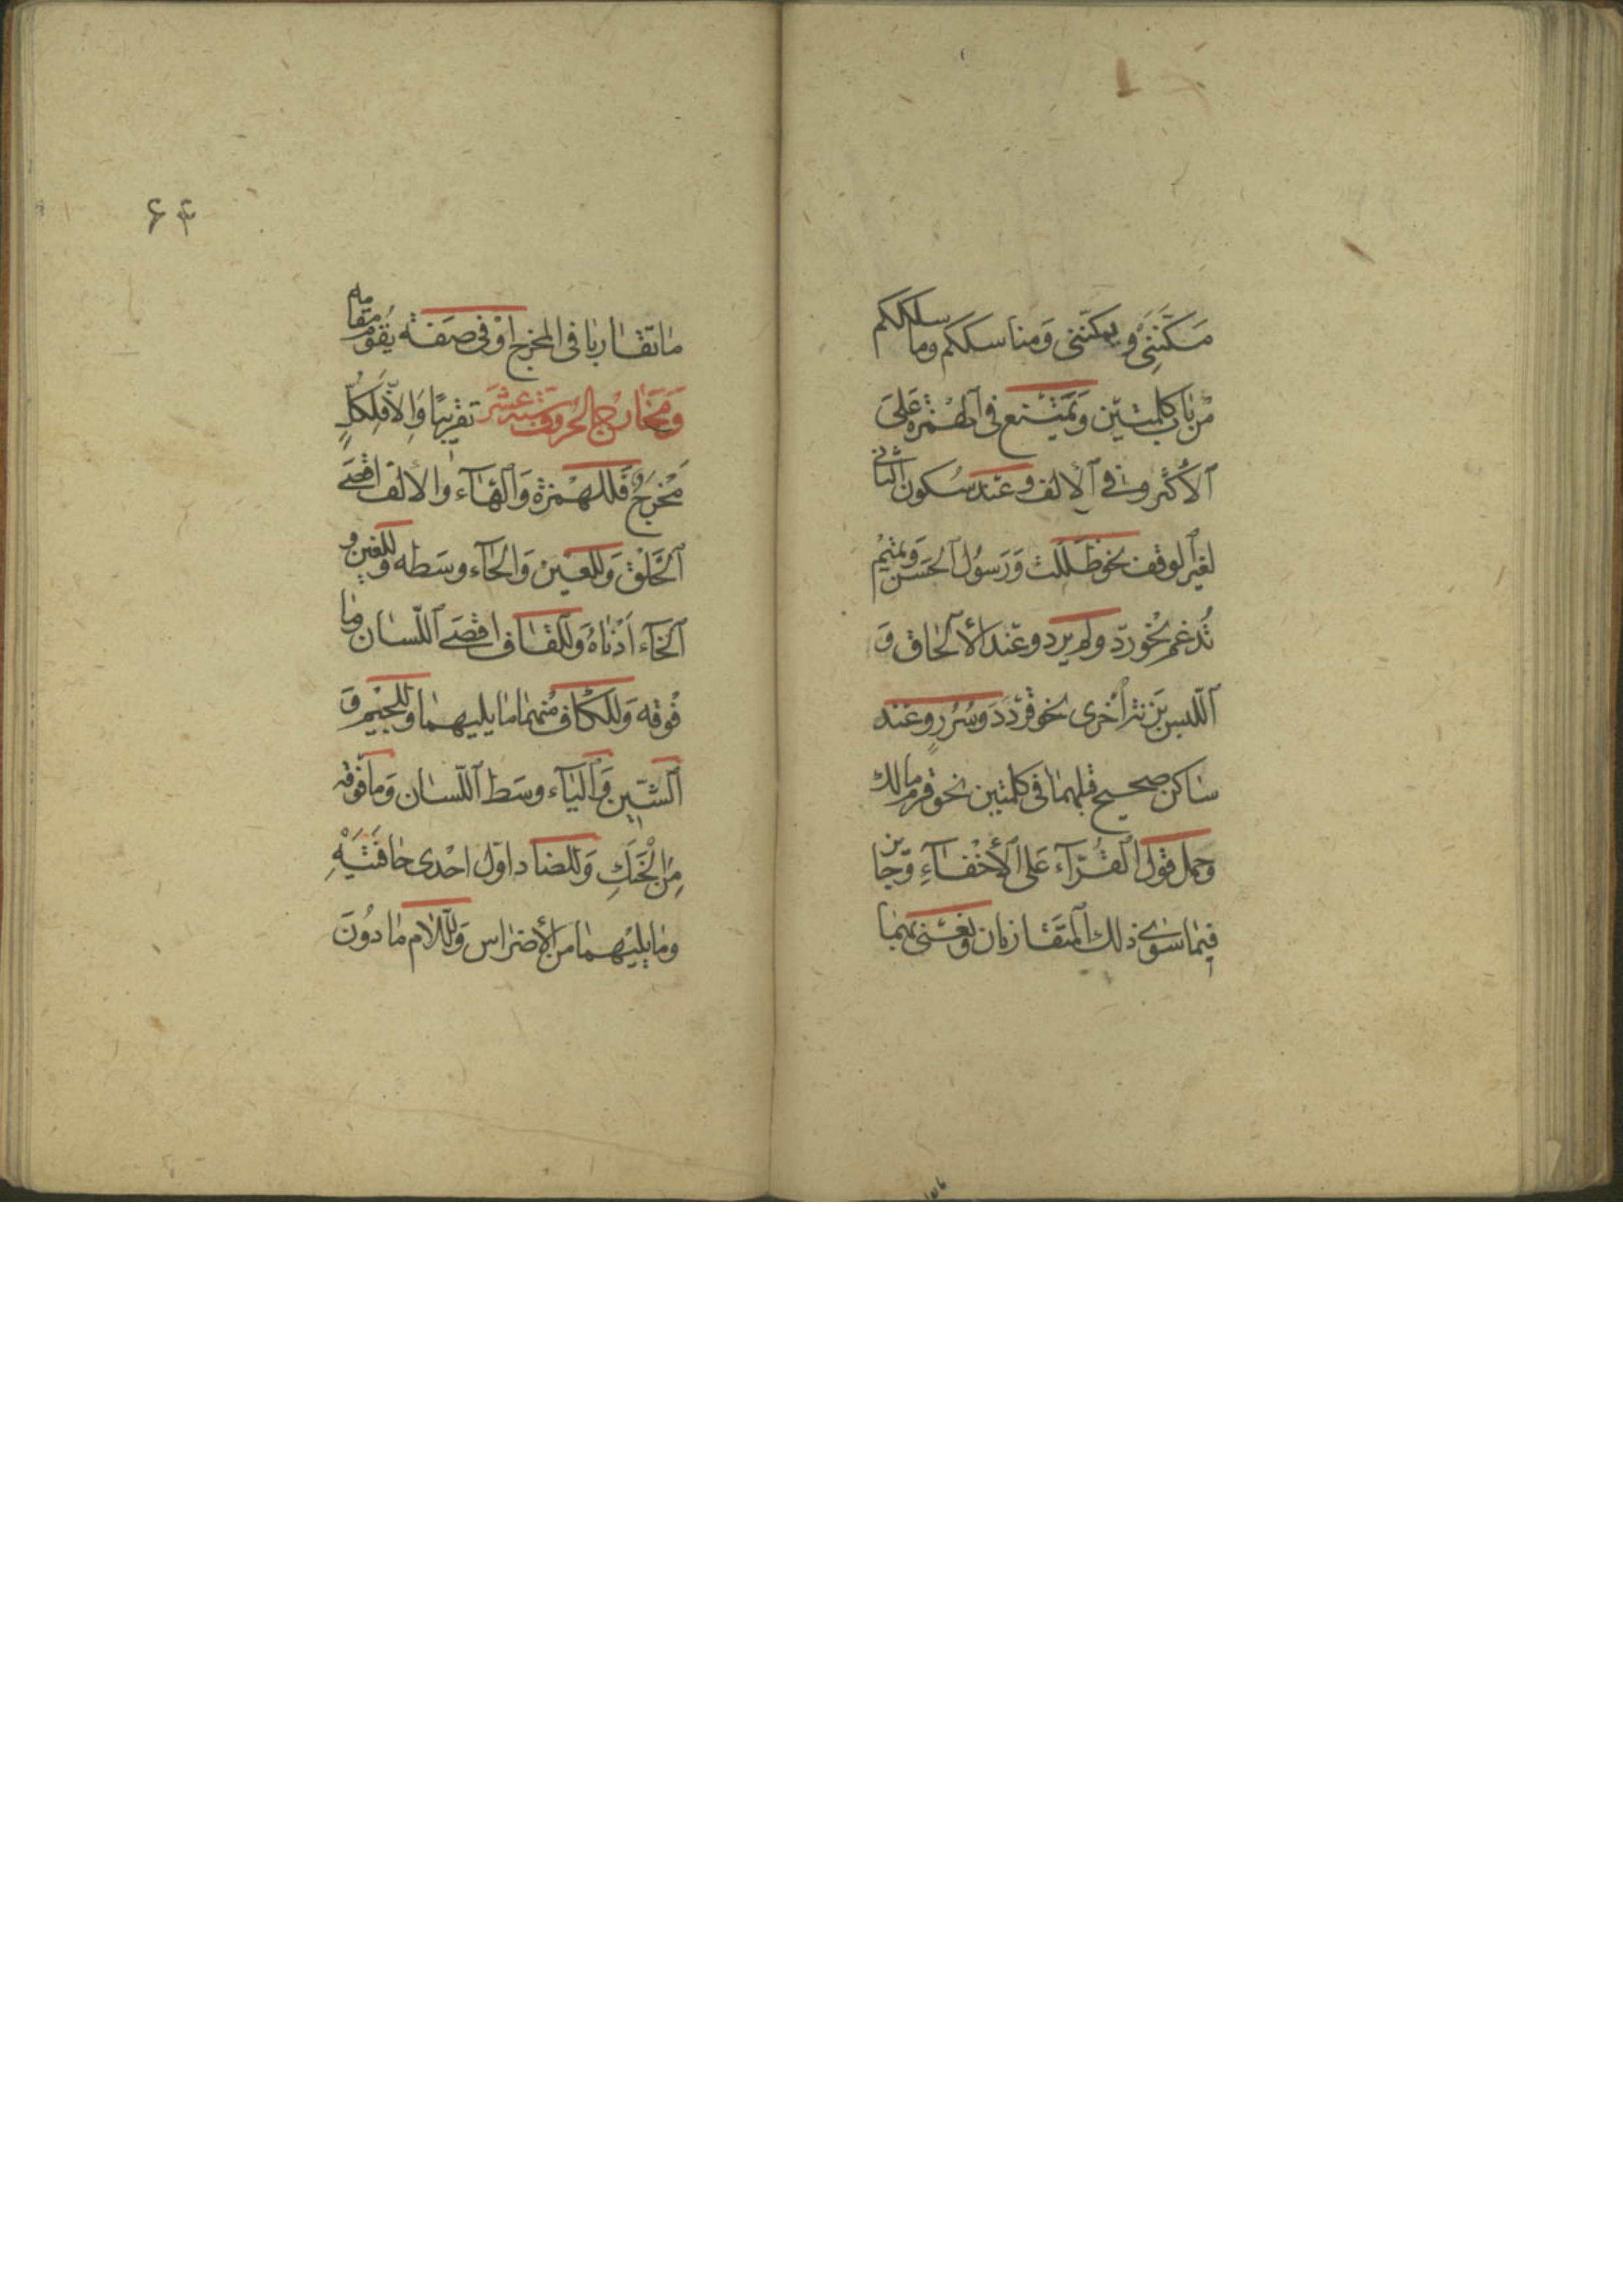 مَكَّنَنِي وَيمكّننى وَمناسككم وما سلككم
مّن باب كلمتين وَيَمْتَنع فى الهمزة عَلىَ
الأكثر وفي الألف وَعنْد سُكون الثانى
لغير الوقف نحو ظَلَلت وَرَسُول الحَسَن وَتميم
تُدغم نحو ردّ ولم يردّ وعنْد الألحاق وَ
اللّبس بزنة أخرى نحو قَرْدَدَ وَسُرُرٍ وعنْد
ساكن صحيح قبلهما فى كلمتين نحو قرم مالك
وَحمل قول القُرّآء عَلى الأخْفآءِ وَجائز
فيما سوى ذلك المتَقاربان ونَعْنى بهما
ما تقاربا فى المخرج اوْ فى صفَة يقُوم مقامه
وَمَخارج الحُرُوف ستة عشَر تقريبًا وَالاّ فلِكُلٍّ
مَخْرَجٌ فَللهمْزة وَالهآء والألف اقصَى
الحَلْق وَللعَيْن وَالحآء وسَطه وللغين و
الخآء اَدْناهُ وَللقاف اقصَى اللّسان وما
فوْقه وَللكاف منهما ما يليهما وللجيْم وَ
الشّين وَاليآء وسَط اللّسان وَما فوْقه
مِنَ الحَنَكِ وَللضاد اوّل احْدى حافَتَيْهِ
وما يليْهما من الأضراس وَللّام ما دُونَ
۶۴